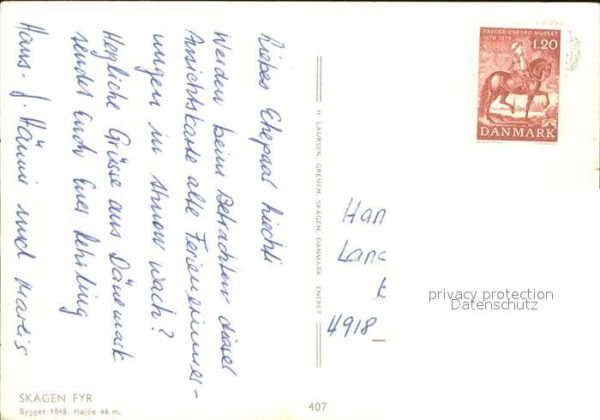 Liebes Ehepaar Liechti
Werden beim Betrachten dieser
Ansichtskarte alte Ferienerinner-
ungen in wach?
Herzliche Grüsse aus Dänemark
sendet Euch Euer Lehrling
Hans-J. Hänni und
FREDERIKSBORG MUSEET
1878-1978
1.20
DANMARK
H. LAURSEN, GRENEN, SKAGEN, DANMARK. ENERET
Han
Lan
4918
privacy protection
Datenschutz
SKAGEN FYR
Bygget 1848. Højde 46 m.
407